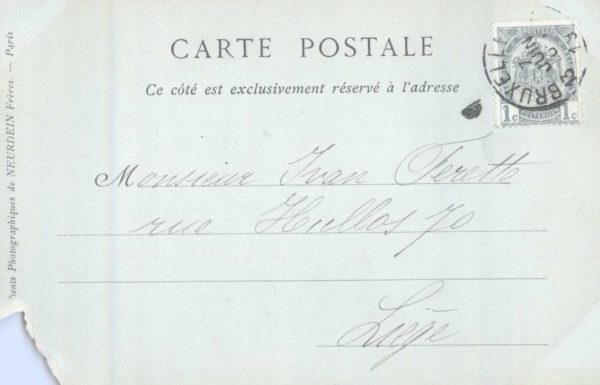 CARTE POSTALE
Ce côté est exclusivement réservé à l'adresse
Monsieur Ivan Ferette
rue Hullos 70
Liège
ments Photographiques de NEURDEIN Frères. — Paris
BRUXELLE
JUIN
1c 1c